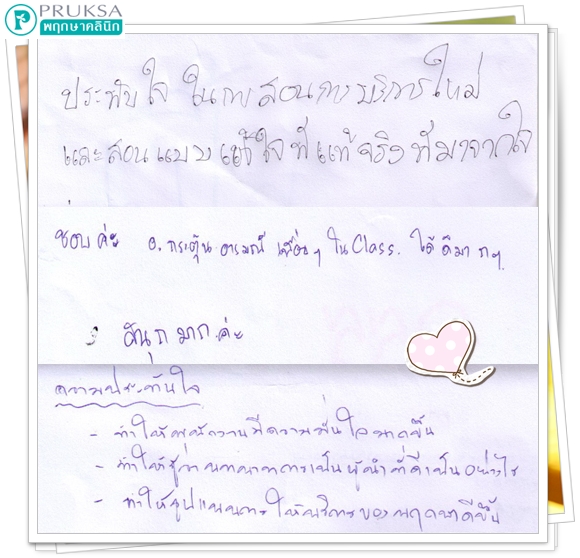 PRUKSA
พฤกษาคลินิก
ประทับใจ ในการสอนการบริการใหม่
และสอนแบบเข้าใจที่แท้จริงที่มาจากใจ
ชอบค่ะ อ.กระตุ้นอารมณ์เพื่อนๆ ใน Class. ได้ดีมากๆ
สนุกมากค่ะ
ความประทับใจ
- ทำให้พนักงานมีความมั่นใจมากขึ้น
- ทำให้รู้ว่าแนวทางการเป็นผู้นำที่ดีเป็นอย่างไร
- ทำให้รูปแบบการให้บริการของพฤกษาดีขึ้น